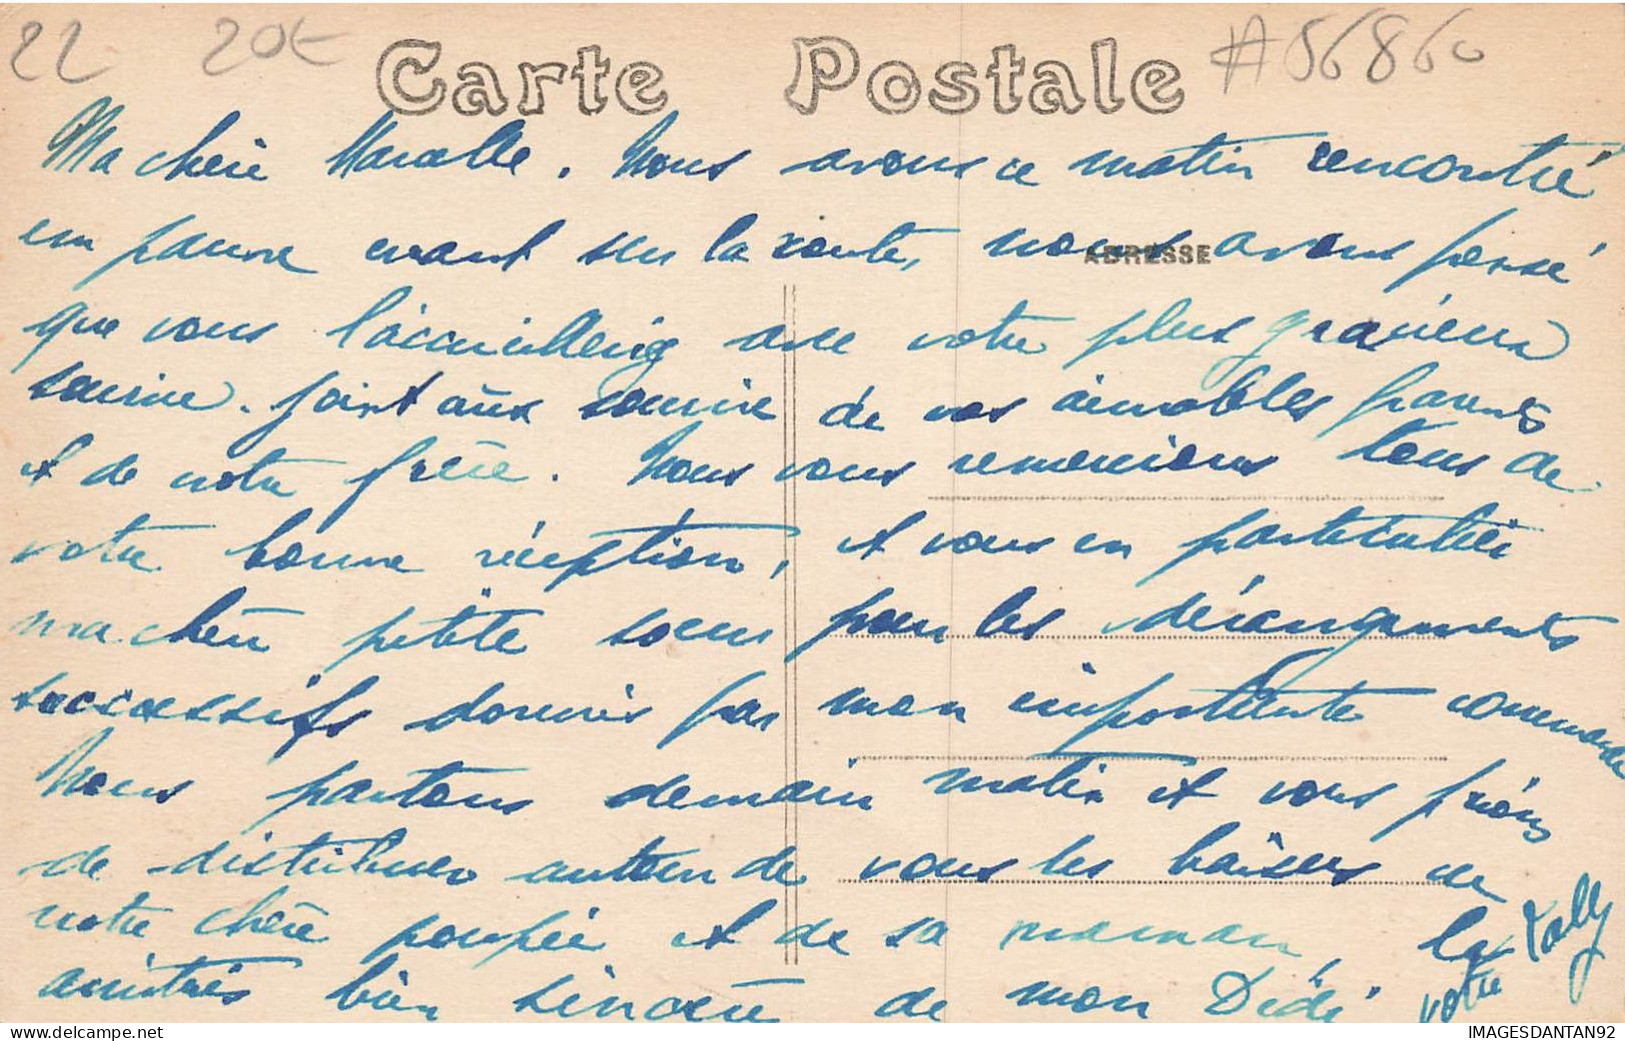 22 20€ Carte Postale #56860
Ma chère Marcelle. Nous avons ce matin rencontré
un pauvre errant sur la route, nous avons pensé
ADRESSE
que vous l'accueilleriez avec votre plus gracieux
sourire. joint aux sourire de vos aimables parents
et de votre frère. Nous vous remercions tous de
votre bonne réception, et vous en particulier
ma chère petite soeur pour les dérangements
successifs donnés par mon importante commande
Nous partons demain matin et vous prions
de distribuer autour de vous les baisers de
votre chère poupée et de sa maman, la
amitiés bien sincère de mon Dédé votre Lolly
IMAGESDANTAN92